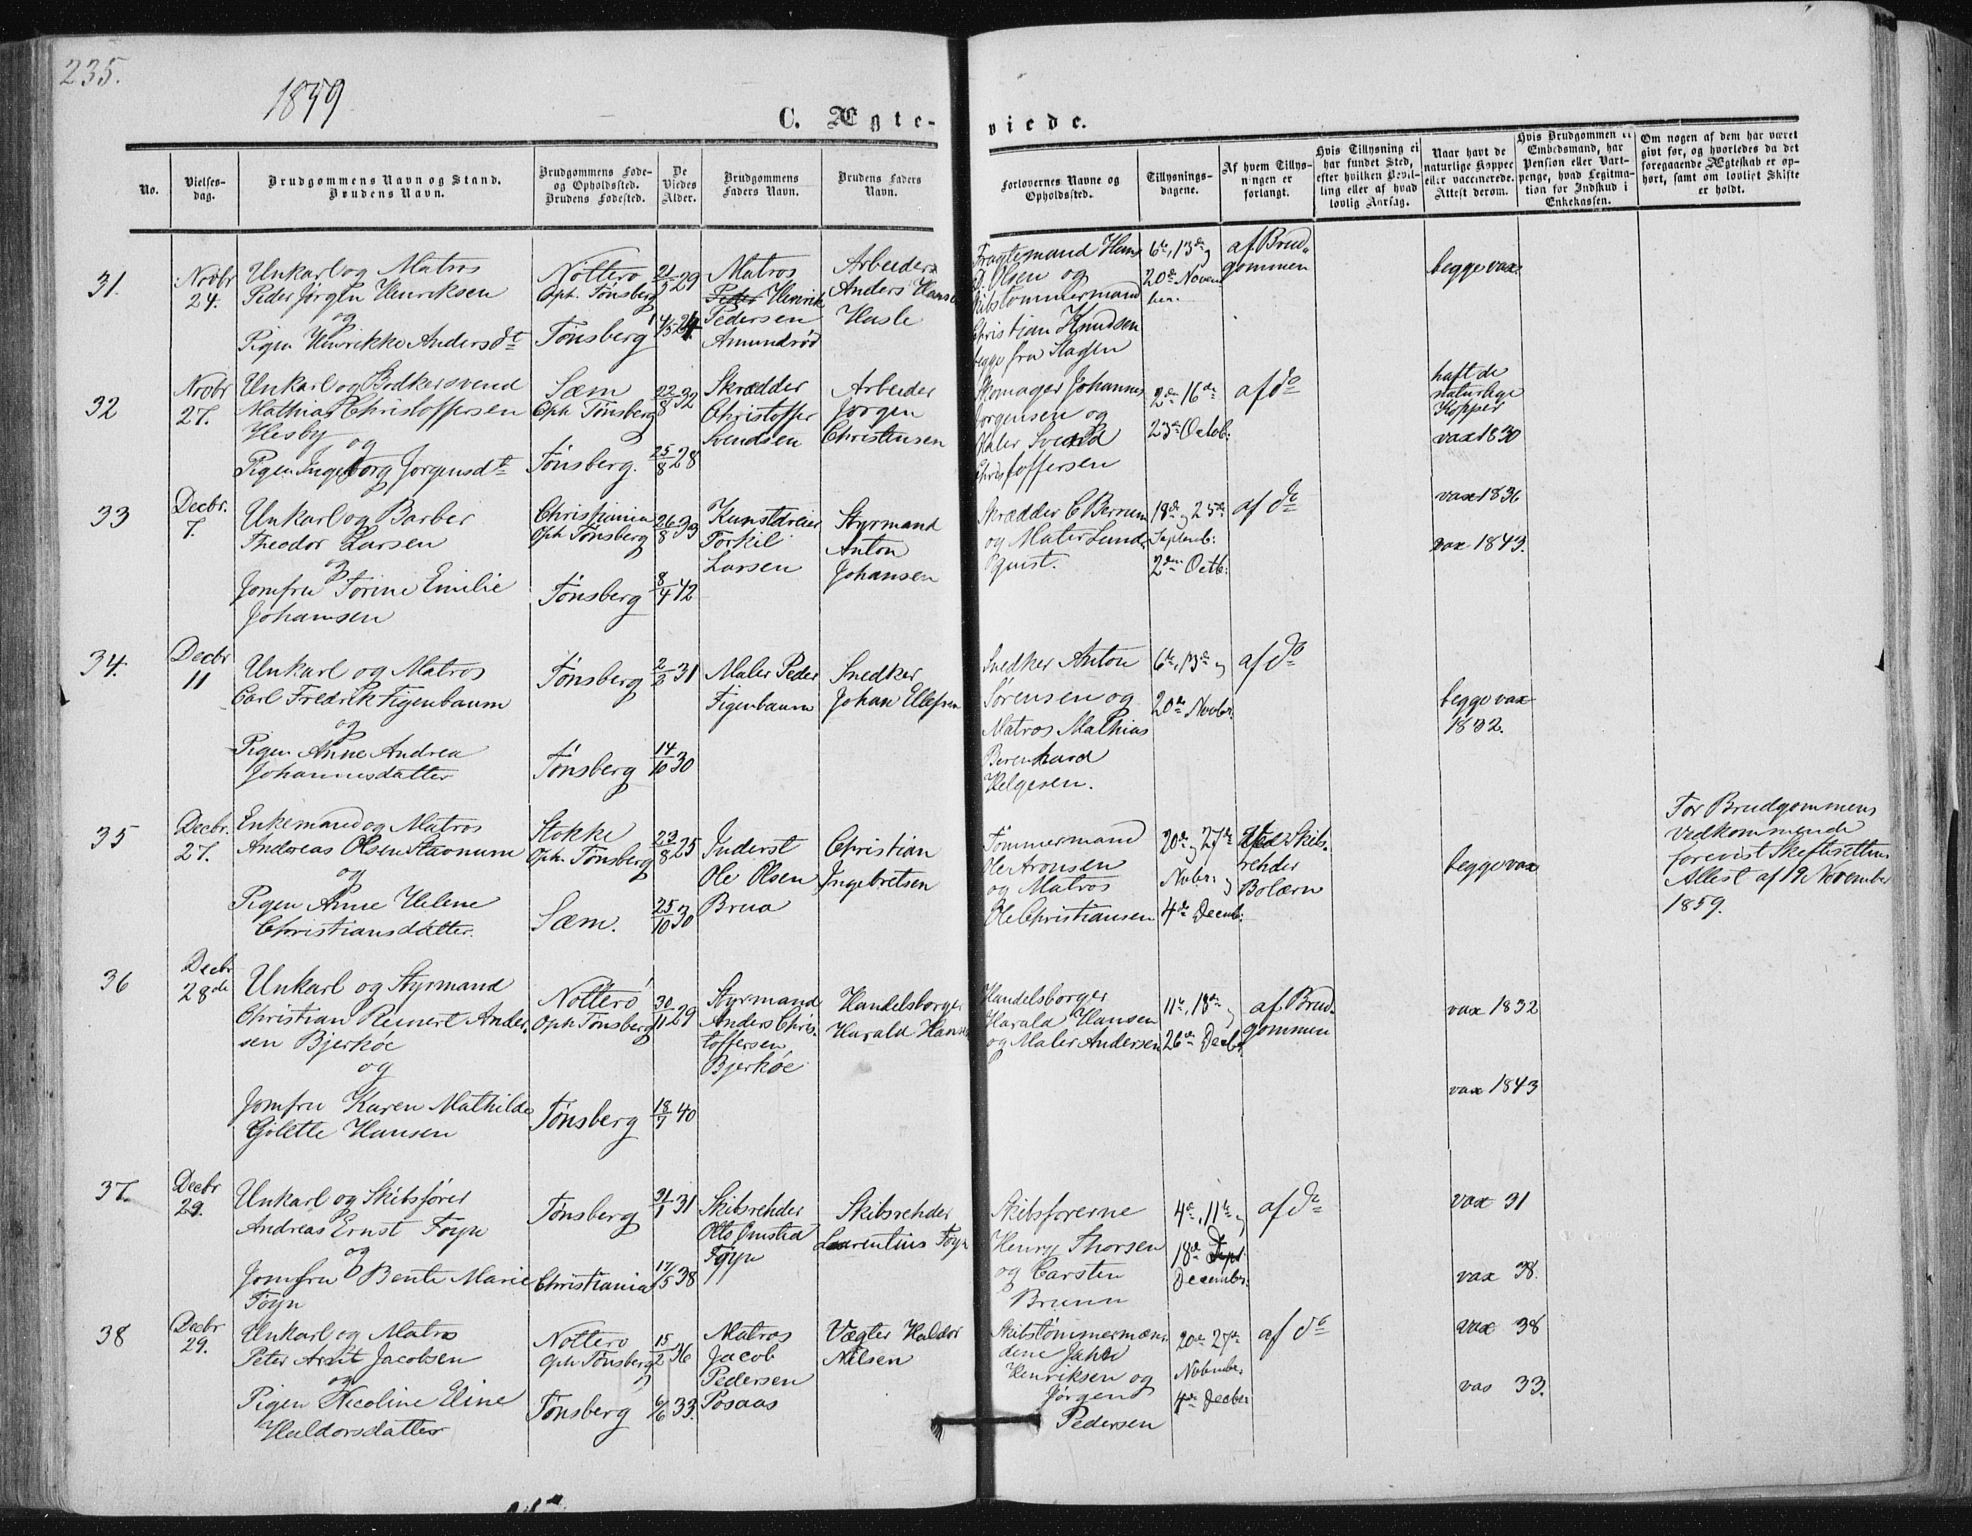 235.
1859
C. Ægte-
viede.
No.
Vielses-
dag.
Brudgommens Navn og Stand.
Brudens Navn.
Brudgommens Føde-
og Opholdssted.
Brudens Fødested.
De
Viedes
Alder.
Brudgommens
Faders Navn.
Brudens Faders
Navn.
Forlovernes Navne og
Opholdssted.
Tillysnings-
dagene.
Af hvem Tillys-
ningen er
forlangt.
Hvis Tillysning ei
har fundet Sted,
efter hvilken Bevil-
ling eller af hvad
lovlig Aarsag.
Naar havt de
naturlige Kopper
eller vaccinerede.
Attest derom.
Hvis Brudgommen er
Embedsmand, har
Pension eller Vart-
penge, hvad Legitima-
tion for Indskud i
Enkekassen.
Om nogen af dem har været
givt før, og hvorledes da det
foregaaende Ægteskab er op-
hørt, samt om lovligt Skifte
er holdt.
31.
Novbr
24.
Unkarl og Matros
Peder Jørgen Henriksen
og
Pigen Henrikke Andersdt
Nøtterø
Oph. Tønsberg
Tønsberg
21/5 29
4/5 24
Matros
Peder Henrik
Pedersen
Amundrød
Arbeider
Anders Hansen
Hasle
Fragtemand Hans
D. Olsen og
Skibstømmermand
Christian Knudsen
begge fra Slagen
6te, 13de og
20de Novem
ber.
af Brud-
gommen
begge vax
32
Novbr
27.
Unkarl og Bødkersvend
Mathias Christoffersen
Hesby og
Pigen Ingeborg Jørgensdt
Sæm
Oph Tønsberg
Tønsberg.
22/8 32
25/8 28
Skrædder
Christoffer
Svendsen
Arbeider
Jørgen
Christensen
Skomager Johannes
Jørgensen og
Maler Svend
Christoffersen
2den 16de
23de Octob:
af do
haft de
naturlige
Kopper
vax 1830
33
Decbr.
7.
Unkarl og Barber
Theodor Larsen
og
Jomfru Torine Emilie
Johansen
Christiania
Oph Tønsberg
Tønsberg
26/8 33
8/4 42
Kunstdreier
Torkil
Larsen
Styrmand
Anton
Johansen
Skrædder C Berrum
og Maler Lund-
qvist.
18de og 25de
Septemb:
2den Octb:
af do
vax 1836
vax 1843.
34.
Decbr
11
Unkarl og Matros
Carl Fredrik Figenbaum
og
Pigen Anne Andrea
Johannesdatter
Tønsberg
Tønsberg
31
14/10 30
Maler Peder
Figenbaum
Snedker
Johan Ellefsen
Snedker Anton
Sørensen og
Matros Mathias
Berenhard
Helgesen.
6te, 13de og
20de Novbr.
af do
begge vax
1832.
35
Decbr.
27.
Enkemand og Matros
Andreas Olsen Stavnum
og
Pigen Anne Helene
Christiansdatter.
Stokke
Oph. Tønsberg
Sæm.
23/8 25
25/10 30
Inderst
Ole Olsen
Brua
Christian
Ingebretsen
Tømmermand
Ole Aronsen
og Matros
Ole Christiansen
20de og 27de
Novbr: og
4de Decemb.
Skibs-
rehder
Bolærn
begge vax
For Brudgommens
Vedkommende
forevist Skifterettens
Attest af 19 November
1859.
36
Decbr
28de
Unkarl og Styrmand
Christian Reinert Ander-
sen Bjerkøe
og
Jomfru Karen Mathilde
Gølette Hansen
Nøtterø
Oph Tønsberg
Tønsberg
30/11 29
18/7 40
Styrmand
Anders Chris-
toffersen
Bjerkøe
Handelsborger
Harald Hansen
Handelsborger
Harald Hansen
og Maler Andersen
11te, 18de og
26de Decbr
af Brud-
gommen
vax 1832
vax 1843
37.
Decbr
29.
Unkarl og Skibsfører
Andreas Ernst Føyn
og
Jomfru Bente Marie
Føyn
Tønsberg
Christiania
31/1 31
17/5 38
Skibsrehder
Otto Omsted
Føyn
Skibsrehder
Laurentius Føyn
Skibsførerne
Henry Thorsen
og Carsten
Bruun
4de, 11te og
18de Sept
Decembr.
af do
vax 31
vax 38.
38
Decbr
29.
Unkarl og Matros
Peter Arnt Jacobsen
og
Pigen Nicoline Eline
Haldorsdatter
Nøtterø
Oph Tønsberg
Tønsberg
15/2 36
6/6 33.
Matros
Jacob
Pedersen
Posaas
Vægter Haldor
Nilsen
Skibstømmermæn-
dene Jahn
Henriksen og
Jørgen
Pedersen
20de 27de
November
4de Decber
af do
vax 38
vax 33.